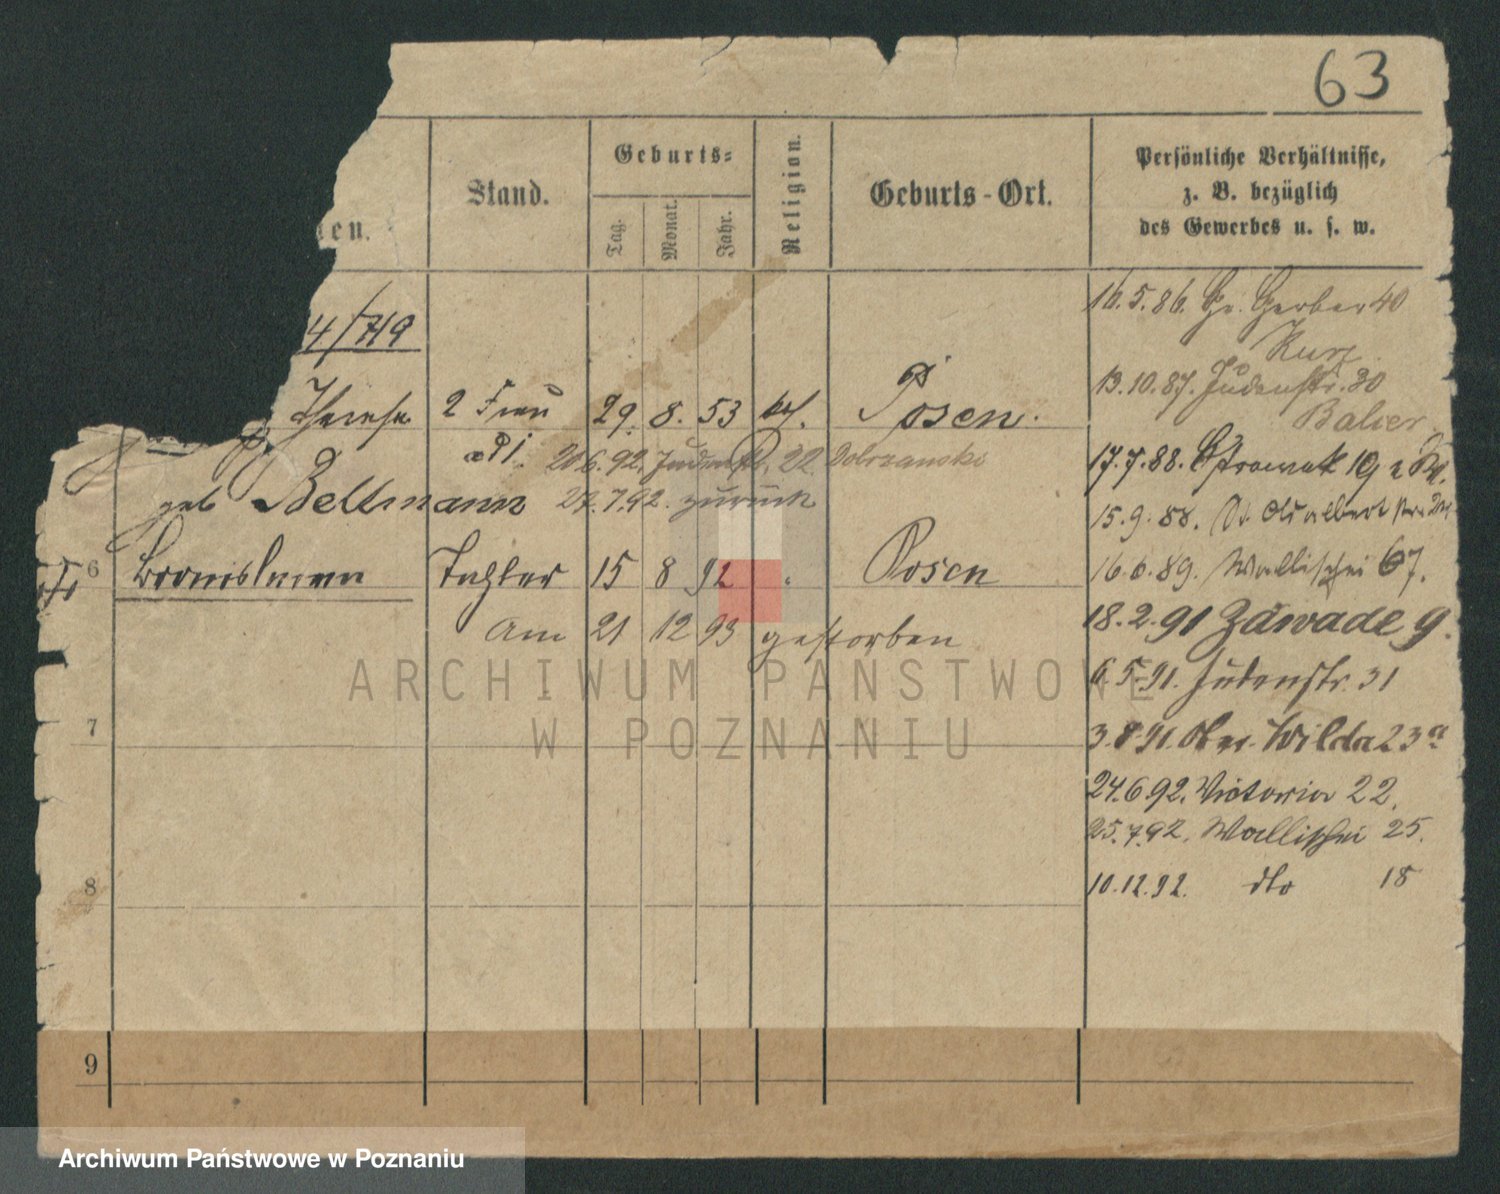 63
en.
Stand.
Geburts=
Tag.
Monat.
Jahr.
Religion.
Geburts-Ort.
Persönliche Verhältnisse,
z. B. bezüglich
des Gewerbes u. s. w.
4/719
16.5.86. Gr. Gerber 40
Kurz
13.10.87. Judenstr. 30
Balier
Therese 2 Frau 29. 8. 53 kat. Posen.
20.6.92. Judenstr. 22 Dobrzanski
17.7.88. 19
geb Bellmann 27.7.92. zurück
15.9.88. St. Adalbert
6 Tochter 15 8 92 Posen
16.6.89. Wallischei 67.
Am 21 12 93 gestorben
18.2.91 Zawade 9.
6.5.91. Judenstr. 31
7
3.8.91. Ober Wilda 23a
24.6.92. Victoria 22.
25.7.92. Wallischei 25.
8
10.12.92. dto 18
9
ARCHIWUM PAŃSTWOWE
W POZNANIU
Archiwum Państwowe w Poznaniu